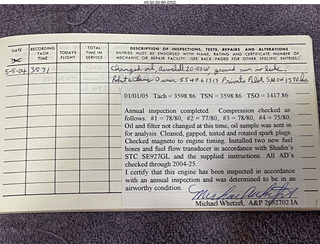 DATE
RECORDING TACH TIME
TODAY'S FLIGHT
TOTAL TIME IN SERVICE
DESCRIPTION OF INSPECTIONS, TESTS, REPAIRS AND ALTERATIONS
ENTRIES MUST BE ENDORSED WITH NAME, RATING AND CERTIFICATE NUMBER OF
MECHANIC OR REPAIR FACILITY. (SEE BACK PAGES FOR OTHER SPECIFIC ENTRIES.)
5-5-04 3571 Changed oil, 20-50W ground run no leak.
Owner 554761313 Private Pilot
01/01/05 Tach = 3598.86 TSN = 3598.86 TSO = 1417.86
Annual inspection completed. Compression checked as
follows. #1 = 78/80, #2 = 77/80, #3 = 78/80, #4 = 75/80.
Oil and filter not changed at this time, oil sample was sent
in for analysis. Cleaned, gapped, tested and rotated spark plugs.
Checked magneto to engine timing. Installed two new fuel
hoses and fuel flow transducer in accordance with Shadin's
STC SE927GL and the supplied instructions. All AD's
checked through 2004-25.
I certify that this engine has been inspected in accordance
with an annual inspection and was determined to be in an
airworthy condition.
Michael Whetzel, A&P 2692702 IA